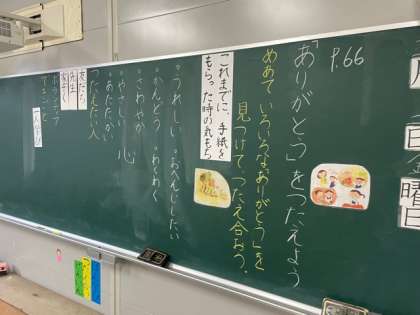 P.66
「ありがとう」をつたえよう
めあて いろいろな「ありがとう」を
見つけて、つたえ合おう。
これまでに、手紙を
もらった時の気もち
・うれしい ・おへんじしたい
・かんどう ・わくわく
・さわやか
・やさしい 心
・あたたかい
つたえたい人
友だち
先生
家ぞく